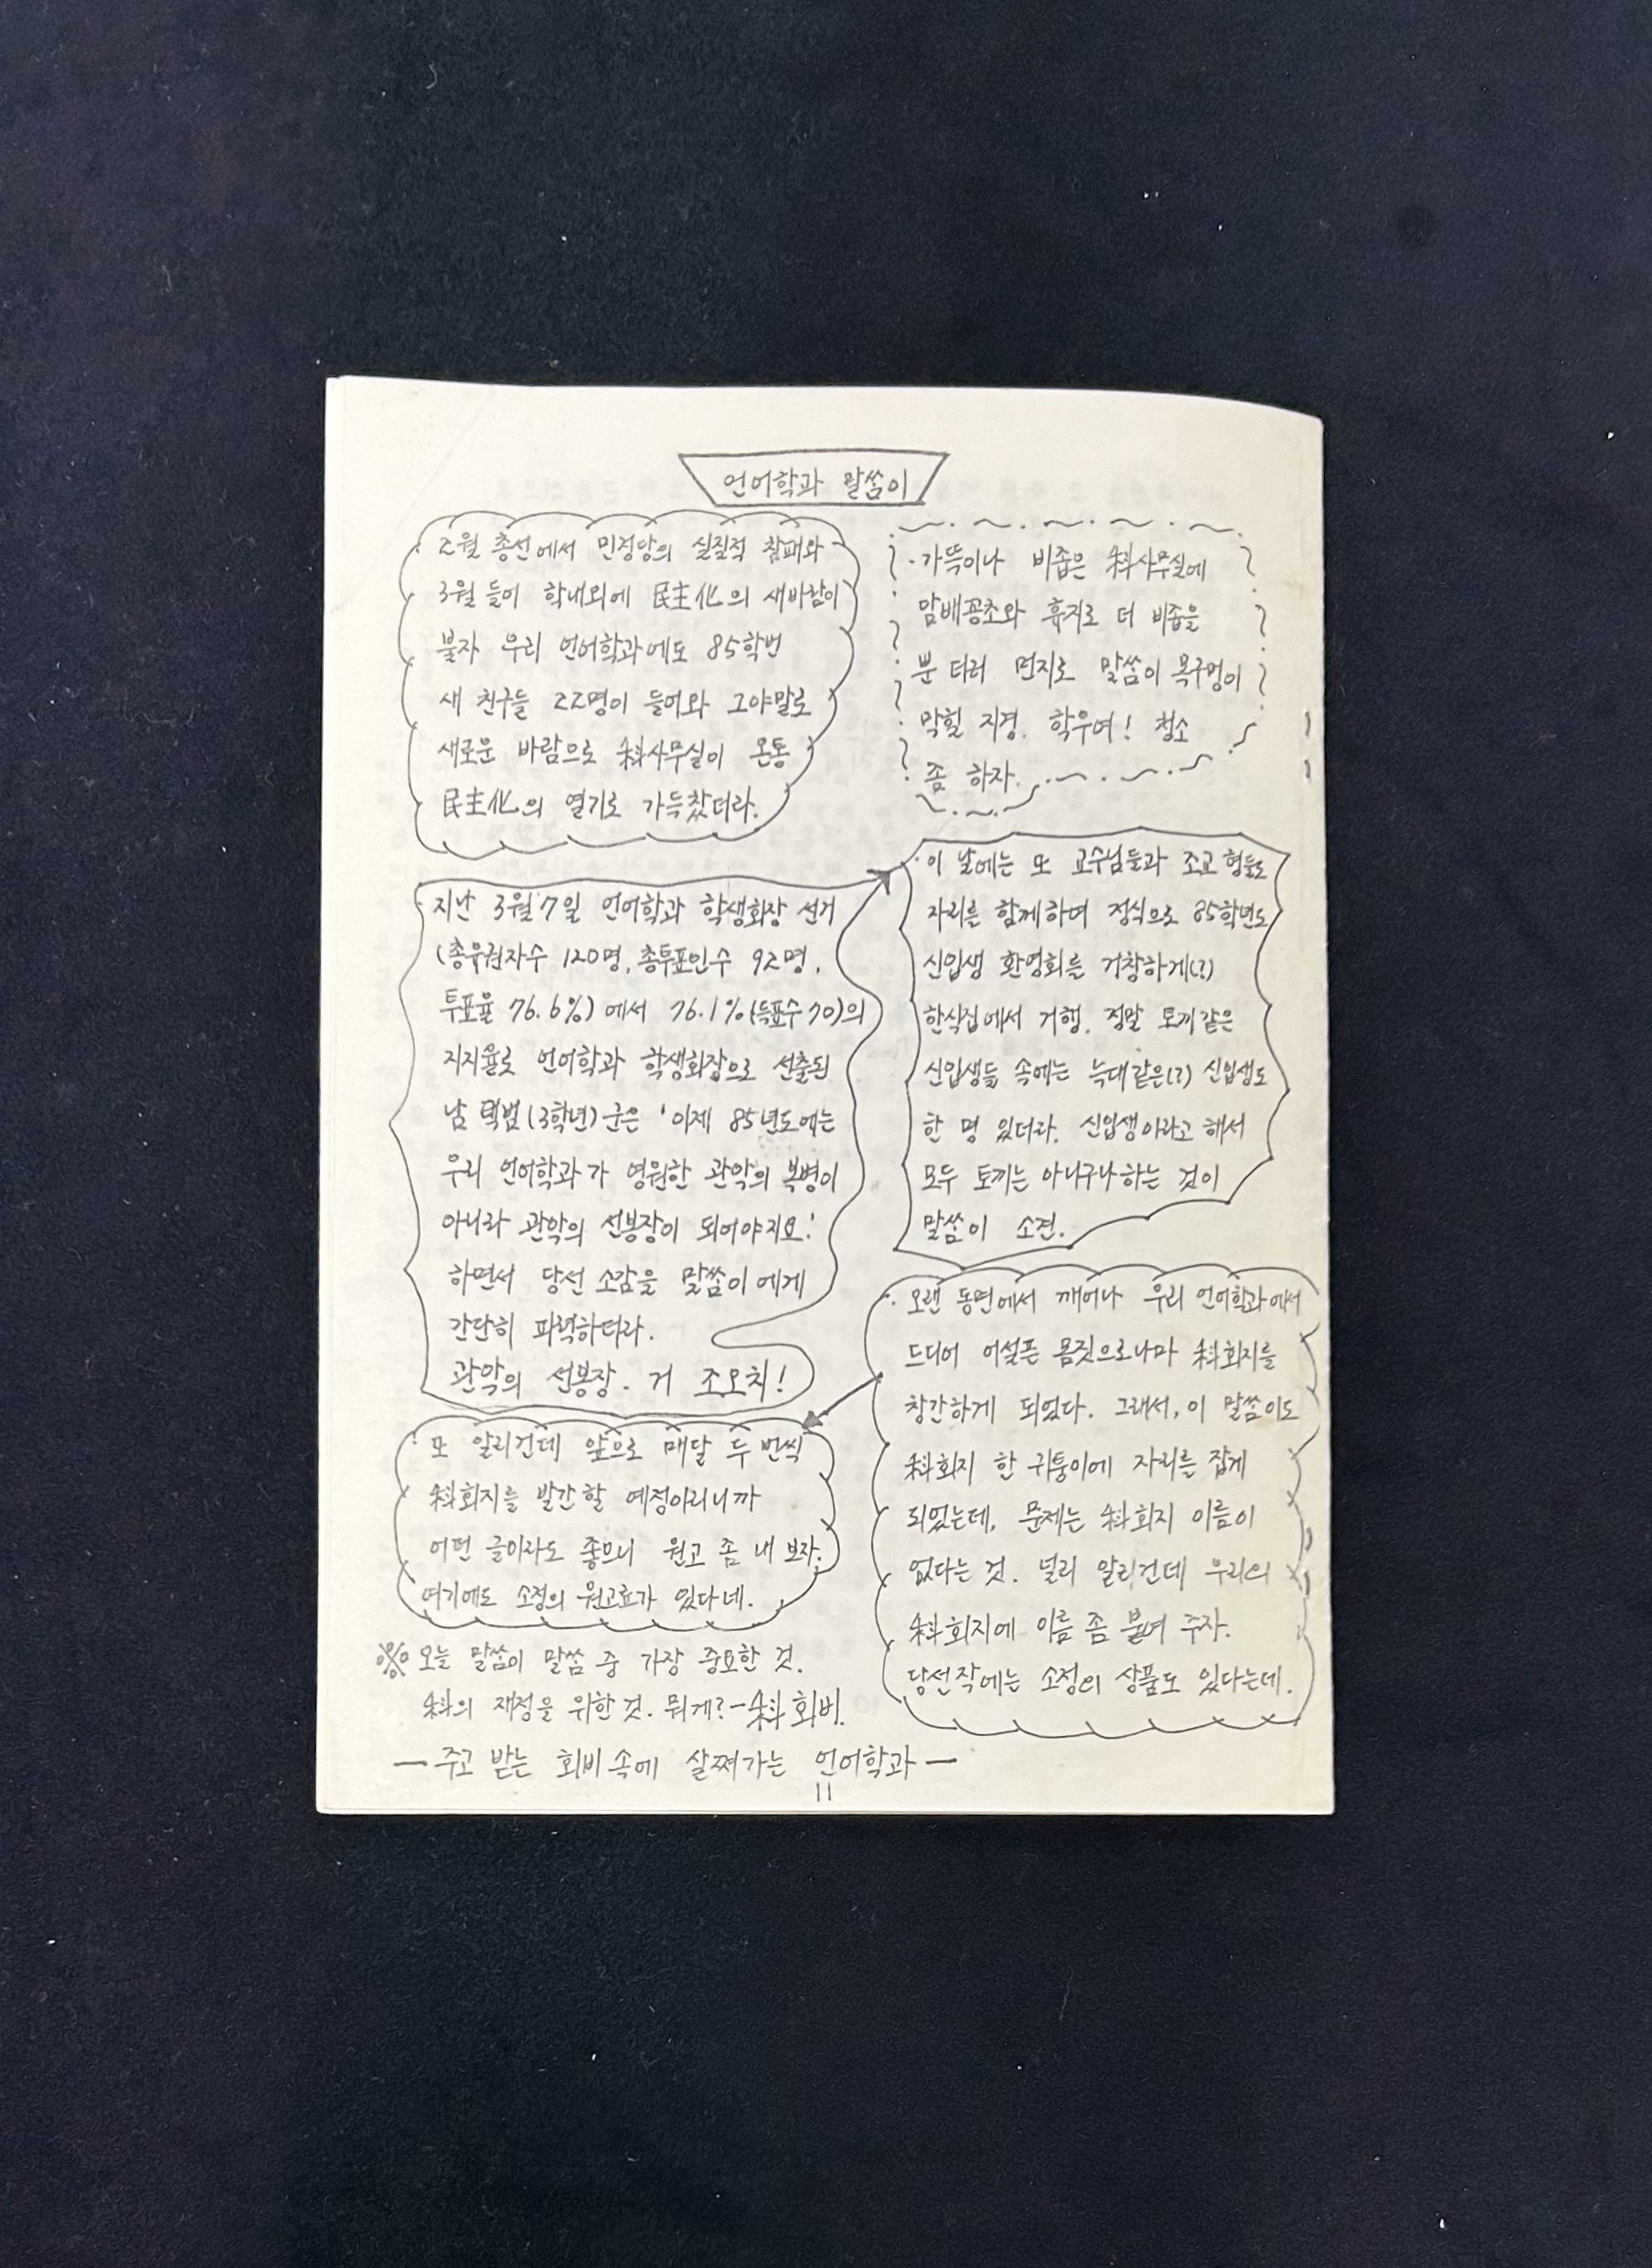 언어학과 말씀이
· 2월 총선에서 민정당의 실질적 참패와
3월 들어 학내외에 民主化의 새바람이
불자 우리 언어학과에도 85학번
새 친구들 22명이 들어와 그야말로
새로운 바람으로 科사무실이 온통
民主化의 열기로 가득찼더라.
· 지난 3월 7일 언어학과 학생회장 선거
(총유권자수 120명, 총투표인수 92명,
투표율 76.6%) 에서 76.1% (득표수 70)의
지지율로 언어학과 학생회장으로 선출된
남 택범 (3학년) 군은 '이제 85년도에는
우리 언어학과가 영원한 관악의 복병이
아니라 관악의 선봉장이 되어야지요.'
하면서 당선 소감을 말씀이에게
간단히 피력하더라.
관악의 선봉장. 거 조오치!
· 이 날에는 또 교수님들과 조교 형들도
자리를 함께하여 정식으로 85학년도
신입생 환영회를 거창하게(?)
한식집에서 거행. 정말 토끼같은
신입생들 속에는 늑대같은(?) 신입생도
한 명 있더라. 신입생이라고 해서
모두 토끼는 아니구나하는 것이
말씀이 소견.
· 가뜩이나 비좁은 科사무실에
담배꽁초와 휴지로 더 비좁을
뿐더러 먼지로 말씀이 목구멍이
막힐 지경. 학우여! 청소
좀 하자.
· 오랜 동면에서 깨어나 우리 언어학과에서
드디어 어설픈 몸짓으로나마 科회지를
창간하게 되었다. 그래서, 이 말씀이도
科회지 한 귀퉁이에 자리를 잡게
되었는데, 문제는 科회지 이름이
없다는 것. 널리 알리건데 우리의
科회지에 이름 좀 붙여 주자.
당선작에는 소정의 상품도 있다는데.
· 또 알리건데 앞으로 매달 두 번씩
科회지를 발간할 예정이리니까
어떤 글이라도 좋으니 원고 좀 내 보자.
여기에도 소정의 원고료가 있다네.
※ 오늘 말씀이 말씀 중 가장 중요한 것.
科의 재정을 위한 것. 뭐게? – 科회비.
— 주고 받는 회비 속에 살쪄가는 언어학과 —
11